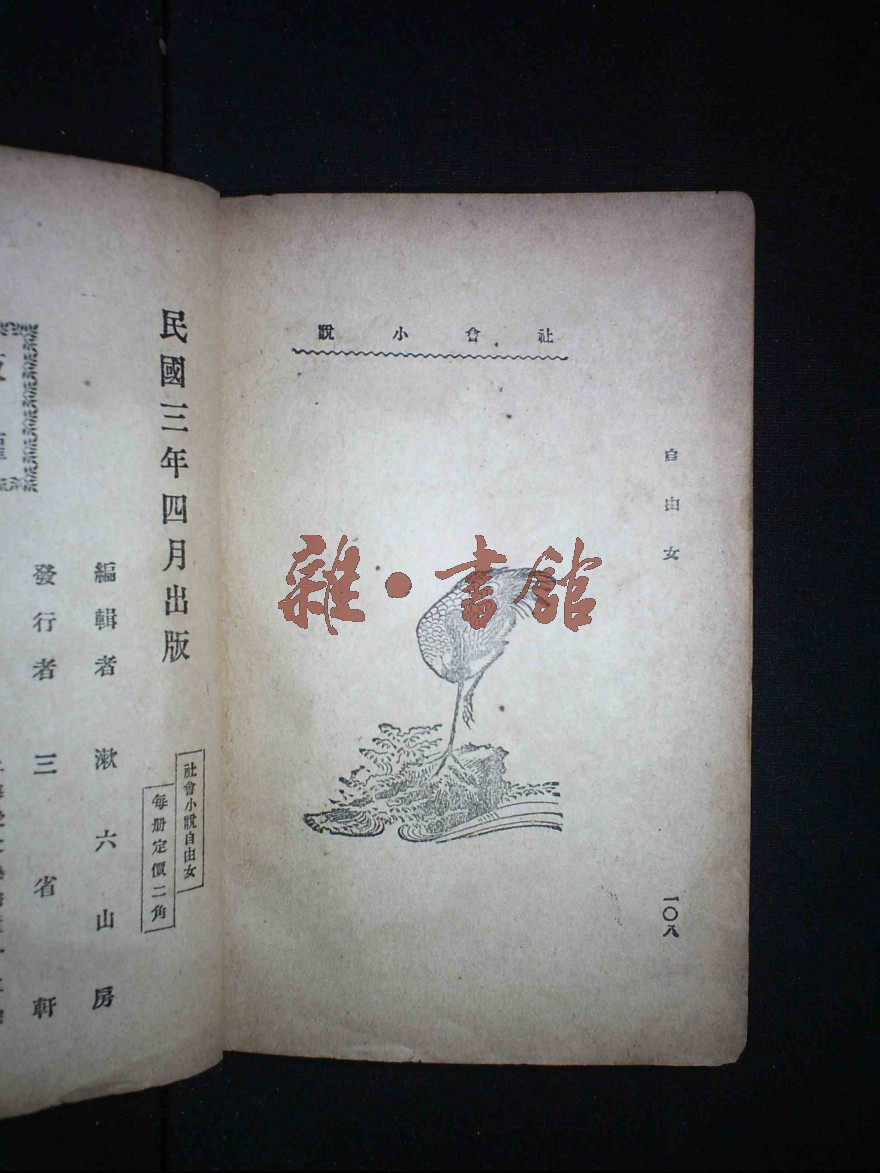 社會小說
自由女
一〇八
雜·書館
民國三年四月出版
社會小說自由女
每册定價二角
編輯者 漱六山房
發行者 三省軒